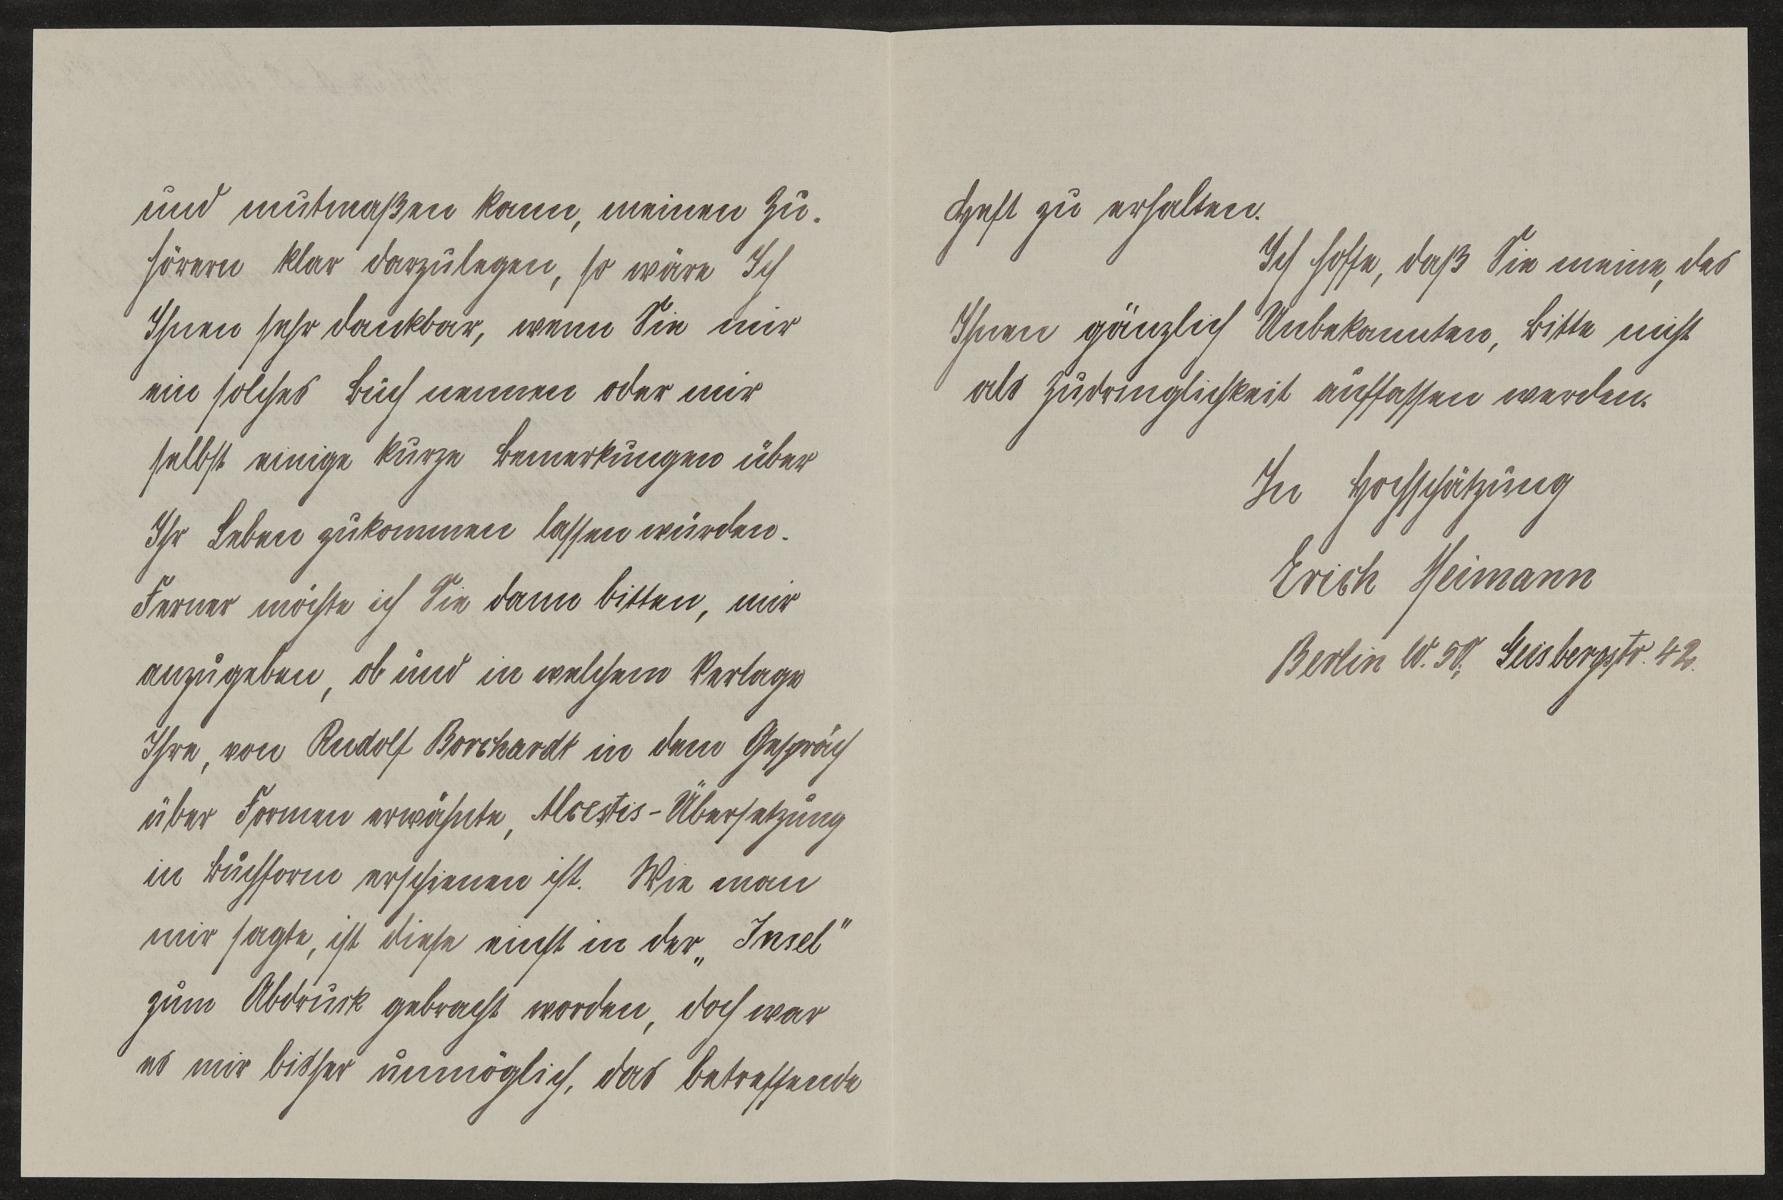 und mutmaßen kann, meinen Zu-
hörern klar darzulegen, so wäre Ich
Ihnen sehr dankbar, wenn Sie mir
ein solches Buch nennen oder mir
selbst einige kurze Bemerkungen über
Ihr Leben zukommen lassen würden.
Ferner möchte ich Sie dann bitten, mir
anzugeben, ob und in welchem Verlage
Ihre, von Rudolf Borchardt in dem Gespräch
über Formen erwähnte, Alcestis-Übersetzung
in Buchform erschienen ist. Wie man
mir sagte, ist diese einst in der „Insel"
zum Abdruck gebracht worden, doch war
es mir bisher unmöglich, das betreffende
Heft zu erhalten.
Ich hoffe, daß Sie meine, des
Ihnen gänzlich Unbekannten, Bitte nicht
als Zudringlichkeit auffassen werden.
In Hochschätzung
Erich Heimann
Berlin W. 50, Geisbergstr. 42.